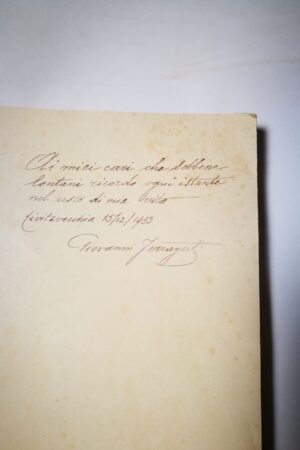 Ai miei cari che sebbene
lontani ricordo ogni istante
nel resto di mia vita
Civitavecchia 15/12/1953
Giovanni